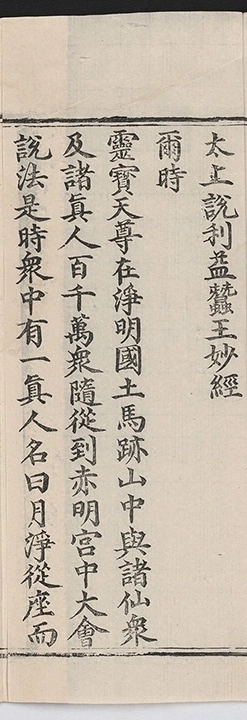 太上說利益蠶王妙經
爾時
靈寶天尊在淨明國土馬跡山中與諸仙衆
及諸眞人百千萬衆隨從到赤明宮中大會
說法是時衆中有一眞人名曰月淨從座而